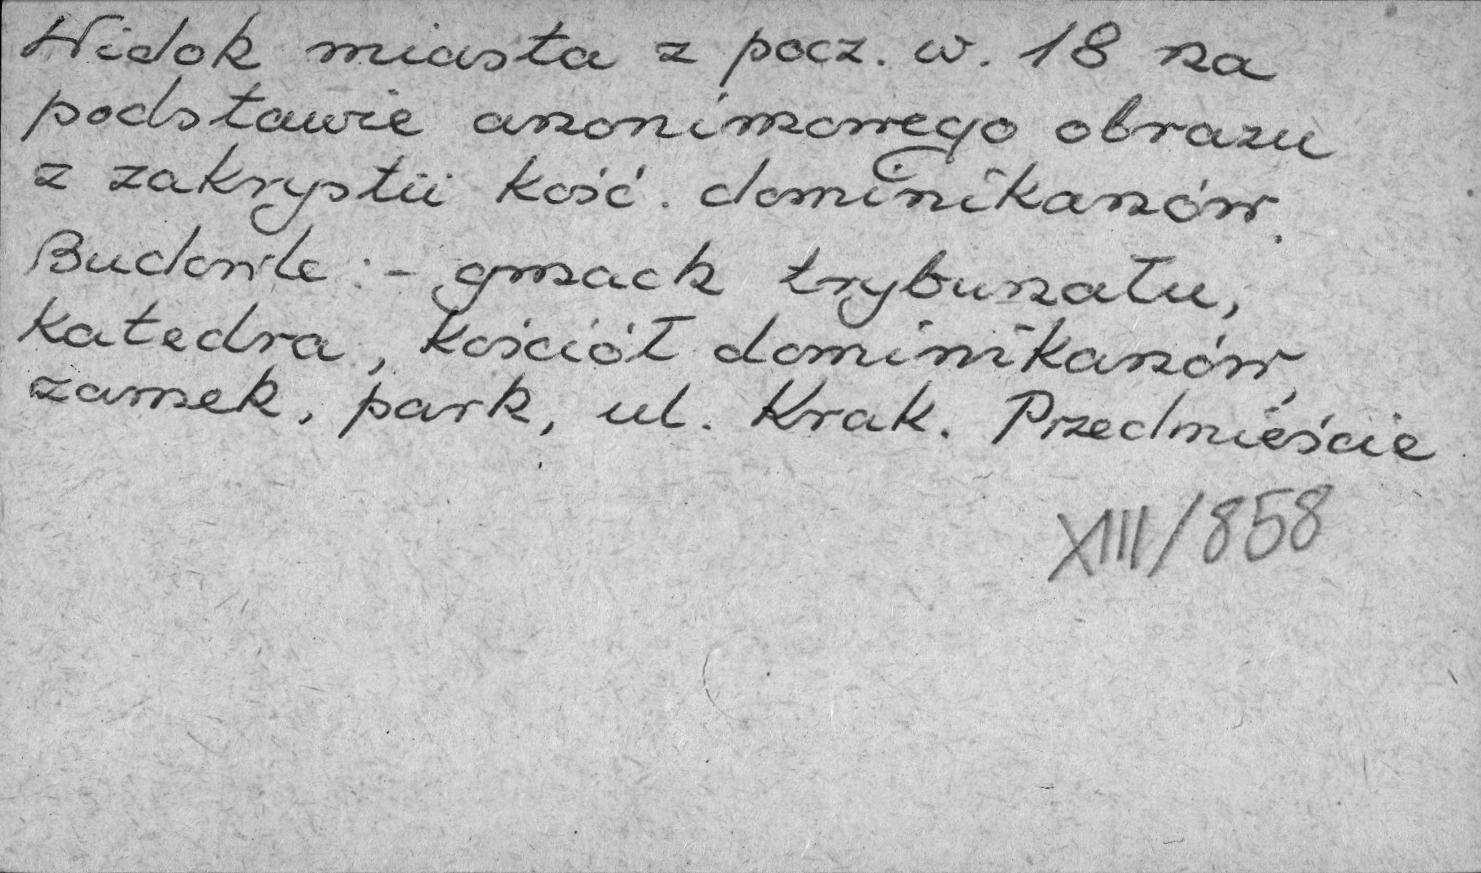 Widok miasta z pocz. w. 18 na
podstawie anonimowego obrazu
z zakrystii kość. dominikanów.
Budowle: - gmach trybunału,
katedra, kościół dominikanów,
zamek, park, ul. Krak. Przedmieście
XIII/858